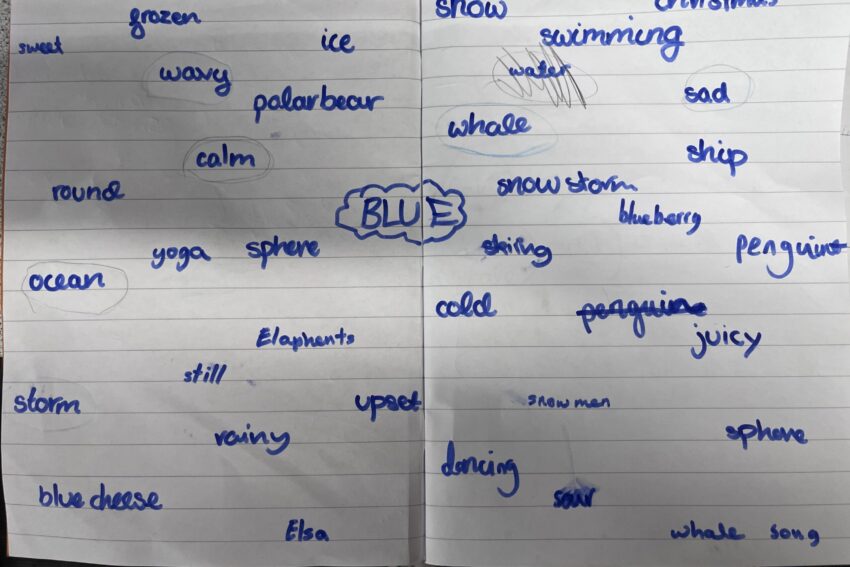 frozen
sweet
ice
wavy
polarbear
calm
round
yoga
sphere
ocean
Elaphents
still
storm
upset
rainy
blue cheese
Elsa
BLUE
snow
christmas
swimming
water
sad
whale
ship
snow storm
blueberry
skiing
penguins
cold
penguins
juicy
snowman
sphere
dancing
sour
whale song